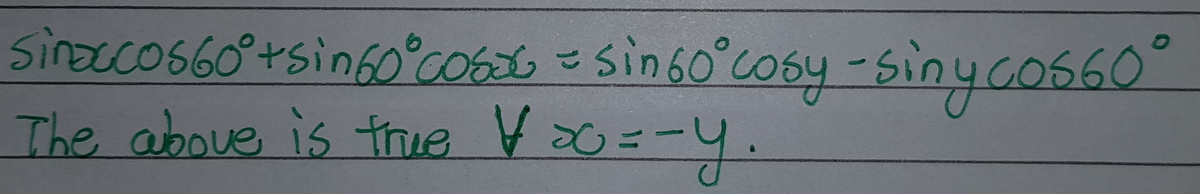 sinxcos60°+sin60°cosx = sin60°cosy - sinycos60°
The above is true ∀ x = -y.